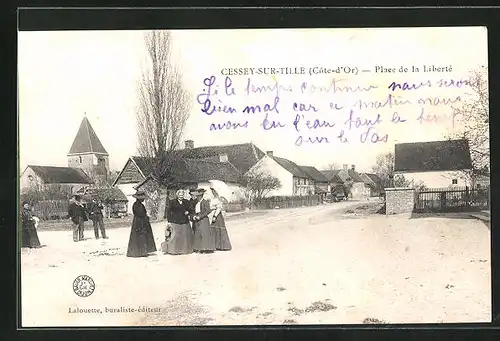 CESSEY-SUR-TILLE (Côte-d'Or) — Place de la Liberté
Si le temps continu nous seron
bien mal car ce matin nous
avons eu l'eau tout le temp
sur le dos
Lalouette, buraliste-éditeur